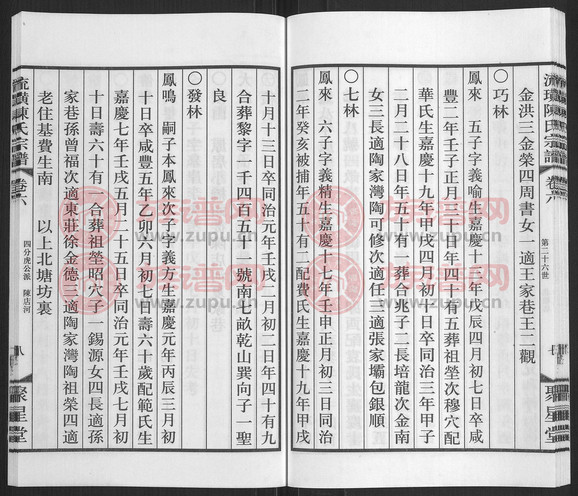 流璜陳氏宗譜 卷六
第二十六世
聚星堂
金洪三金榮四周書女一適王家巷王二觀
○巧林
鳳來 五子字義喻生嘉慶十三年戊辰四月初七日卒咸
豐二年壬子正月三十日年四十有五葬祖塋次穆穴配
華氏生嘉慶十九年甲戌四月初十日卒同治三年甲子
二月二十八日年五十有一葬合兆子二長培龍次金南
女三長適陶家灣陶可修次適任三適張家壩包銀順
○七林
鳳來 六子字義精生嘉慶十七年壬申正月初三日同治
二年癸亥被捕年五十有二配費氏生嘉慶十九年甲戌
十月十三日卒同治元年壬戌二月初二日年四十有九
合葬黎字一千四百五十一號南七畝乾山巽向子一聖
良
○發林
鳳鳴 嗣子本鳳來次子字義方生嘉慶元年丙辰三月初
十日卒咸豐五年乙卯六月初七日壽六十歲配範氏生
嘉慶七年壬戌五月二十五日卒同治元年壬戌七月初
十日壽六十有一合葬祖塋昭穴子一錫源女四長適孫
家巷孫曾福次適東莊徐金德三適陶家灣陶祖榮四適
老住基費生南 以上北塘坊裏
流璜陳氏宗譜 卷六
四分虎公派 陳店河
八
聚星堂
族谱网
www.zupu.cn